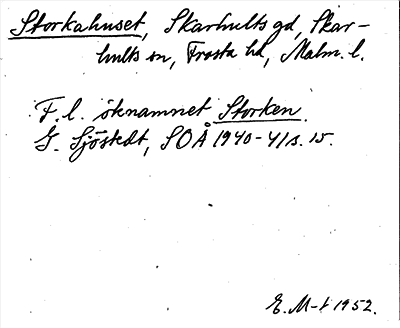 Storkahuset, Skarhults gd, Skar-
hults sn, Frosta hd, Malm. l.
F. l. öknamnet Storken.
G. Sjöstedt, SOÅ 1940-41 s. 15.
E. M-t 1952.